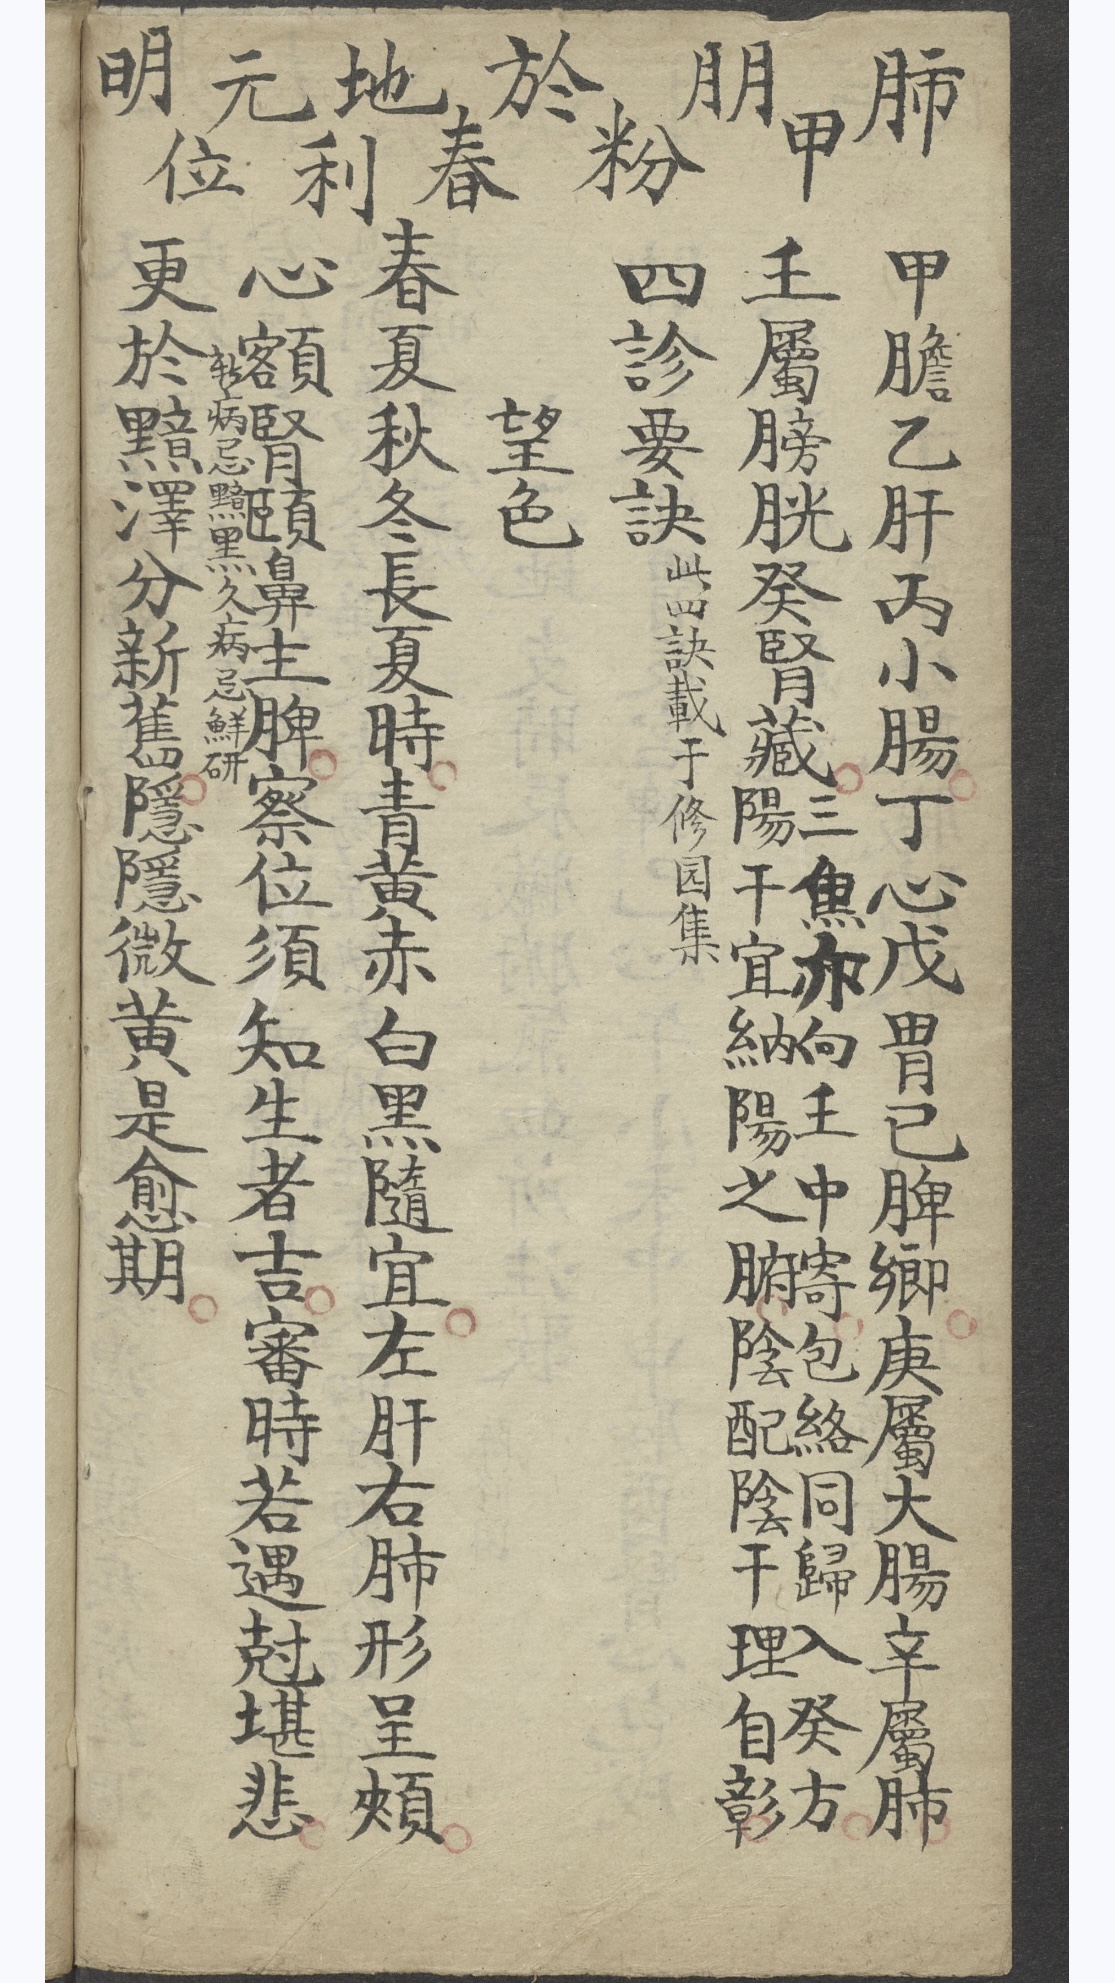 肺甲朋粉於春地利元位明
甲膽乙肝丙小腸丁心戊胃己脾鄉庚屬大腸辛屬肺
壬屬膀胱癸腎藏三焦亦向壬中寄包絡同歸入癸方
陽干宜納陽之腑陰配陰干理自彰
四診要訣此四訣載于修园集
望色
春夏秋冬長夏時青黃赤白黑隨宜左肝右肺形呈頰
心額腎頤鼻主脾察位須知生者吉審時若遇尅堪悲
新病忌黯黑久病忌鮮研
更於黯澤分新舊隱隱微黃是愈期